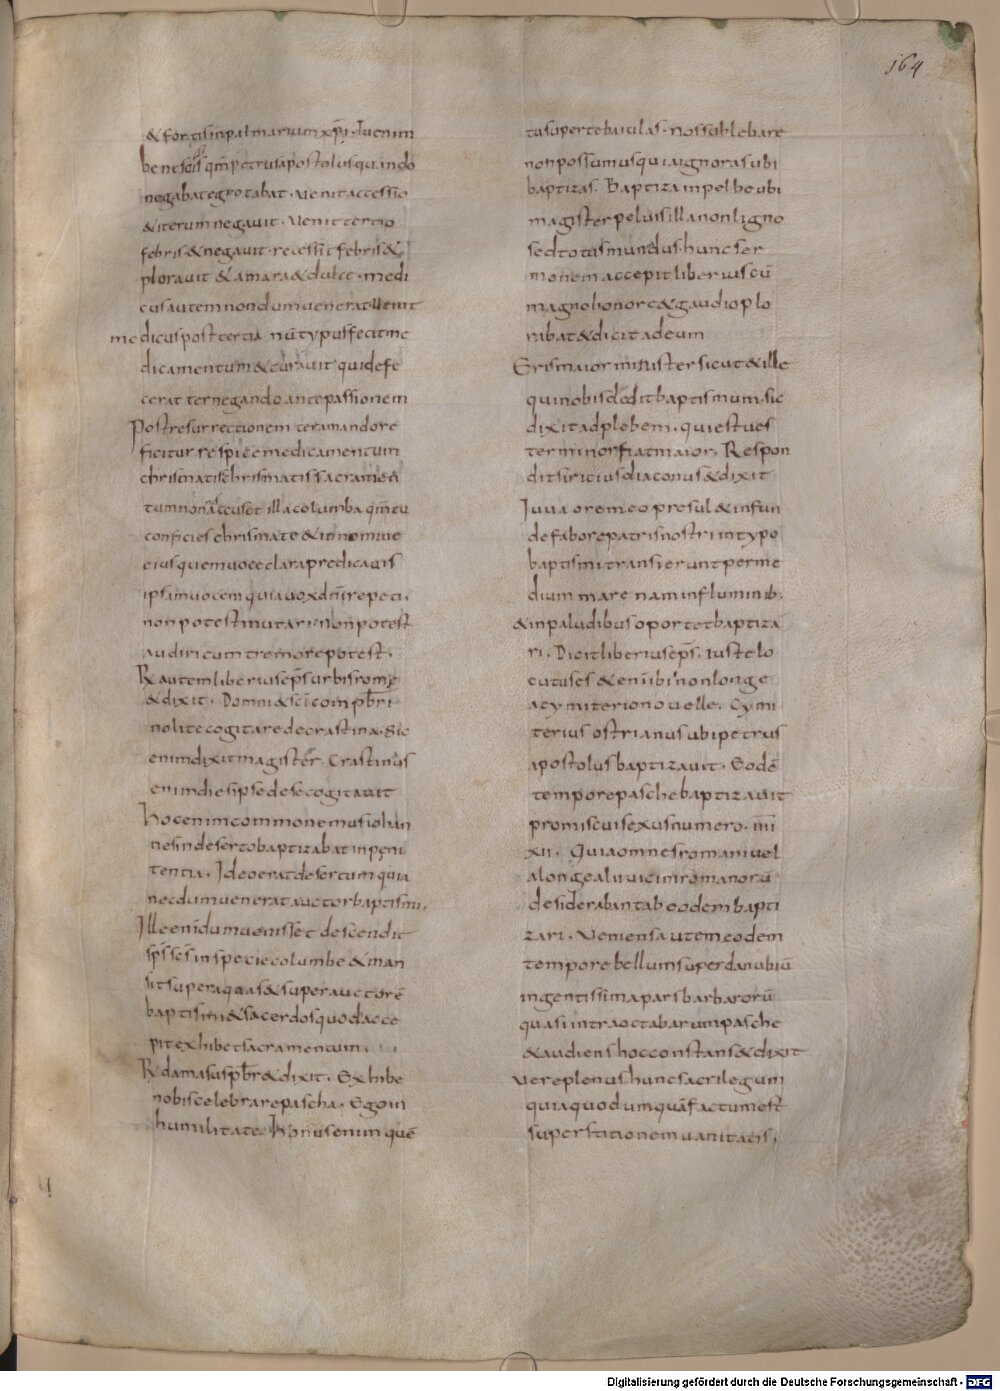 164
& fortis in palmarium xp̄i. Tu enim
bene scis qm̄ petrus apostolus quando
negabat egrotabat. uenit accessio
& iterum negauit. uenit tertio
febris. & negauit. recessit febris &
plorauit & amara & dulce. medi
cus autem nondum uenerat. uenit
medicus post tertiā nū typus. fecit me
dicamentum & curauit qui defe
cerat ter negando ante passionem
Post resurrectionem ter amando re
ficitur. respice medicamentum
chrismatis chrismatis sacramen
tum non accuset illa columba qm̄ tu
conficies chrismate & in nomine
eius quem uoce clara predicatis
ipsam uocem quia uox dn̄i repeti.
non potest mutari. non potest
audiri cum tremore potest.
R̄ autem liberius ep̄s urbis rome
& dixit. Domni & sc̄i conpb̄ri
nolite cogitare de crastina. Sic
enim dixit magister. Crastinus
enim dies ipse de se cogitauit
Hoc enim commonemus iohan
nes in deserto baptizabat in peni
tentia. Ideo erat desertum quia
necdum uenerat auctor baptismi.
Ille enī dum uenisset descendit
sp̄s sc̄s in specie columbe & man
sit super aquas & super auctorē
baptismi & sacerdos quod acce
pit exhibet sacramentum.
R̄ damasus pb̄r & dixit. Exhibe
nobis celebrare pascha. Ego in
humilitate. Honus enim quē
tu super te baiulas. nos subleuare
non possumus quia ignoras ubi
baptizas. Baptiza in pelbe ubi
magister peluis illa non ligno
sed totus mundus. hunc ser
monem accepit liberius cū
magno honore & gaudio plo
rabat & dicit ad eum
Eris maior minister sicut & ille
qui nobis dedit baptismum. sic
dixit ad plebem. qui est ues
ter minor fiat maior. Respon
dit siricius diaconus & dixit
Iuua orem eo prosul & infun
de fabore patris nostri in typo
baptismi transierunt per me
dium mare nam in fluminib;
& in paludibus oportet baptiza
ri. Dicit liberius ep̄s. iuste lo
cutus es & enim ibi non longe
a cymiterio nouelle. Cymi
terius ostrianus ubi petrus
apostolus baptizauit. Eodē
tempore pasche baptizauit
promiscui sexus numero. īīīī
xii. Quia omnes romani uel
a longe alii uicini romanorū
desiderabant ab eodem bapti
zari. Veniens autem eodem
tempore bellum super danubiū
ingentissima pars barbarorū
quasi intra octabarum pasche
& audiens hoc constans & dixit
uere plenus hunc sacrilegum
quia quod umquā factum est
superstitionem uanitatis.
Digitalisierung gefördert durch die Deutsche Forschungsgemeinschaft - DFG